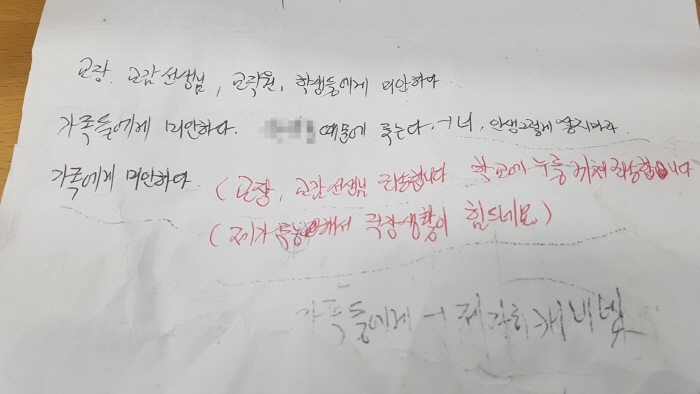 교장, 교감선생님, 교직원, 학생들에게 미안하다
가족들에게 미안하다. 때문에 죽는다. →너, 인생그렇게 살지마라.
가족에게 미안하다
(교장, 교감선생님 죄송합니다 학교에 누를 끼쳐 죄송합니다
(제가 무능해서 직장생활이 힘드네요)
가족들에게 →